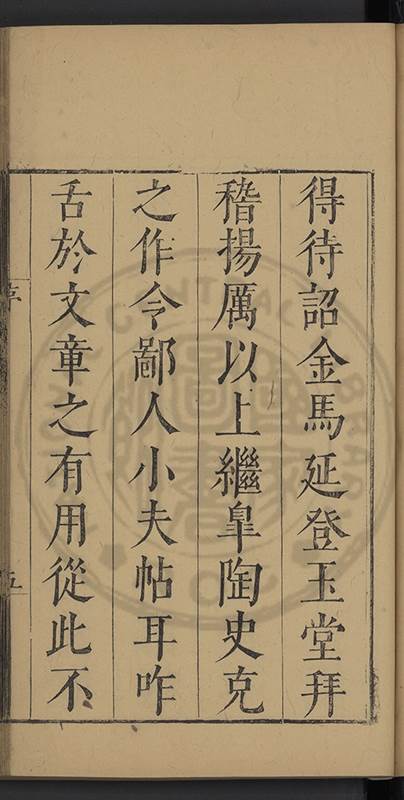 得待詔金馬延登玉堂拜
稽揚厲以上繼臯陶史克
之作令鄙人小夫帖耳咋
舌於文章之有用從此不
五